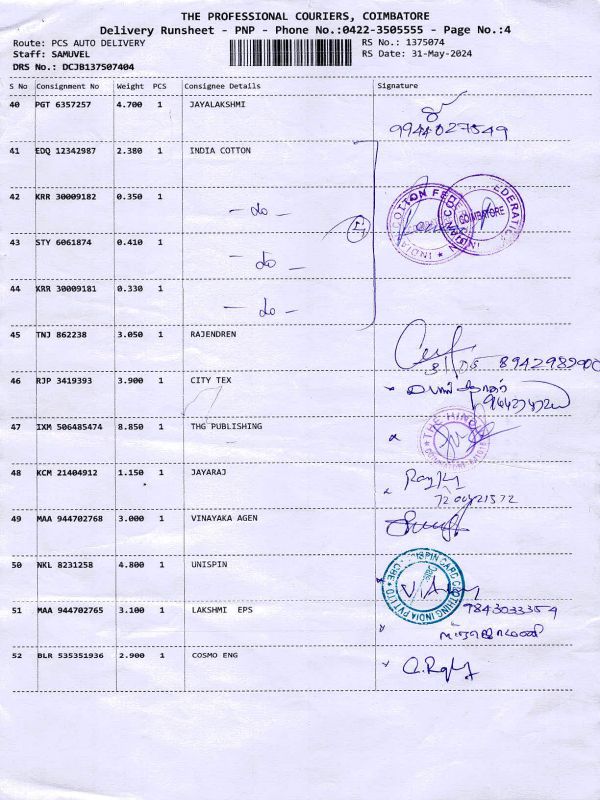 THE PROFESSIONAL COURIERS, COIMBATORE
Delivery Runsheet - PNP - Phone No.:0422-3505555 - Page No.:4
Route: PCS AUTO DELIVERY RS No.: 1375074
Staff: SAMUVEL RS Date: 31-May-2024
DRS No.: DCJB137507404
S No Consignment No Weight PCS Consignee Details Signature
40 PGT 6357257 4.700 1 JAYALAKSHMI
9944027549
41 EDQ 12342987 2.380 1 INDIA COTTON
42 KRR 30009182 0.350 1 - do -
43 STY 6061874 0.410 1 - do -
44 KRR 30009181 0.330 1 - do -
COIMBATORE
45 TNJ 862238 3.050 1 RAJENDREN
46 RJP 3419393 3.900 1 CITY TEX
47 IXM 506485474 8.850 1 THG PUBLISHING
THE HINDU
48 KCM 21404912 1.150 1 JAYARAJ
49 MAA 944702768 3.000 1 VINAYAKA AGEN
50 NKL 8231258 4.800 1 UNISPIN
51 MAA 944702765 3.100 1 LAKSHMI EPS
9843033354
52 BLR 535351936 2.900 1 COSMO ENG